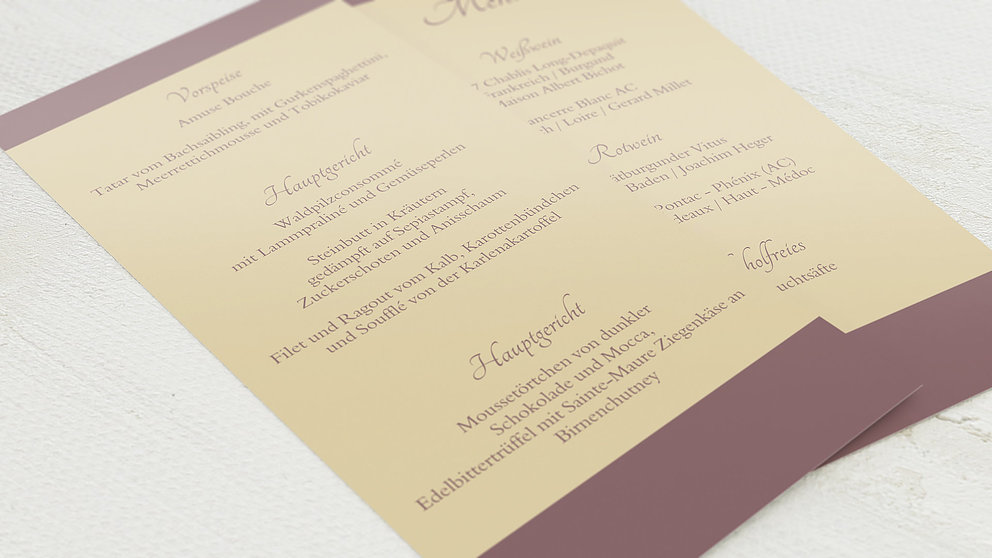 Vorspeise
Amuse Bouche
Tatar vom Bachsaibling, mit Gurkenspaghettini,
Meerrettichmousse und Tobikokaviar
Hauptgericht
Waldpilzconsommé
mit Lammpraliné und Gemüseperlen
Steinbutt in Kräutern
gedämpft auf Sepiastampf,
Zuckerschoten und Anisschaum
Filet und Ragout vom Kalb, Karottenbündchen
und Soufflé von der Karlenakartoffel
Hauptgericht
Moussetörtchen von dunkler
Schokolade und Mocca,
Edelbittertrüffel mit Sainte-Maure Ziegenkäse an
Birnenchutney
Weißwein
7 Chablis Long-Depaquit
Frankreich / Burgund
Maison Albert Bichot
ancerre Blanc AC
ch / Loire / Gerard Millet
Rotwein
ätburgunder Vitus
Baden / Joachim Heger
Pontac - Phénix (AC)
deaux / Haut - Médoc
holfreies
uchtsäfte